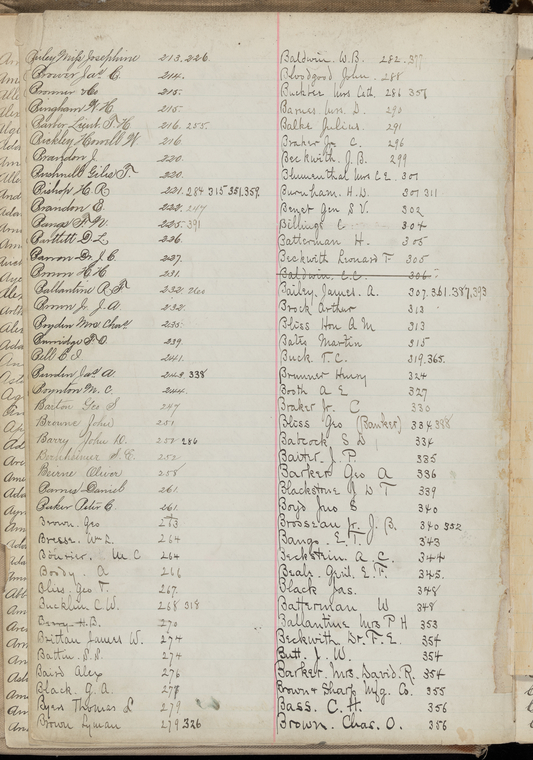 Bailey Miss Josephine 213.226
Brower Jas. C. 214.
Bronner & Co 215.
Bingham W. H 215.
Barber Lieut. T. H. 216. 255.
Bickley Howell W 216
Brandon J. 220.
Bushnell Giles F. 220.
Bishop H. R 221. 284 315 351.359.
Brandon E. 222. 247
Bangs F. N. 225. 391
Bartlett D L 226.
Barron Dr J. C. 227.
Brown H H 231.
Ballantine R F 232. 260
Brown Jr J. A. 232.
Boyden Mrs Chas. 235.
Burridge F. O 239.
Bell E I 241.
Burden Jas. A. 243. 338
Boynton M. C. 244.
Barton Geo S 247
Browne John 251
Barry John D. 251 286
252
Beerne Oliver 258
Barnes Daniel 261.
Baker Peter C 261.
Brown. Geo 263
Breese. Wm L. 264
Bouvier. M C 264
Boody. A 266
Bliss. Geo T. 267.
Bucklin C. W. 268 318
Berry H. B. 270
Brittan James W. 274
Battin. S. R. 274
Baird Alex 276
Black. G. A. 278
Byers Thomas L 279
Brown Lyman 279 326
Baldwin. W. B. 282. 377
Bloodgood John. 288
Buckter Mrs Cath. 286 358
Barnes Mrs. D. 290
Balke Julius. 291
Braker Jr C. 296
Beckwith J. B. 299
Blumenthal Mrs C E. 301
Burnham. H. D. 301 311
Benet Gen S V. 302
Billings C 304
Batterman H. 305
Beckwith Leonard F 305
Baldwin. C. C. 306
Bailey. James. A. 307. 361. 387. 393
Brock Arthur 313
Bliss Hon A M 313
Bates Martin 315
Buck. T. C. 319. 365.
Brunner Henry 324
Booth A E 327
Braker Jr. C 330
Bliss Geo (Banker) 334 388
Babcock S D 334
Baiter J. P 335
Barker Geo A 336
Blackstone J D T 339
Boyd Jno S 340
Brosseau Jr. J. B. 340 352
Bangs. E. T. 343
Beckstein. A. C 344
Beals. Gril. E. F. 345.
Black Jas. 348
Batterman W 348
Ballantine Mrs P H 353
Beckwith Dr. F. E. 354
Butt. J. W. 354
Barker. Mrs. David. R. 354
Brown & Sharp Mfg. Co. 355
Bass. C. H. 356
Brown. Chas. O. 356